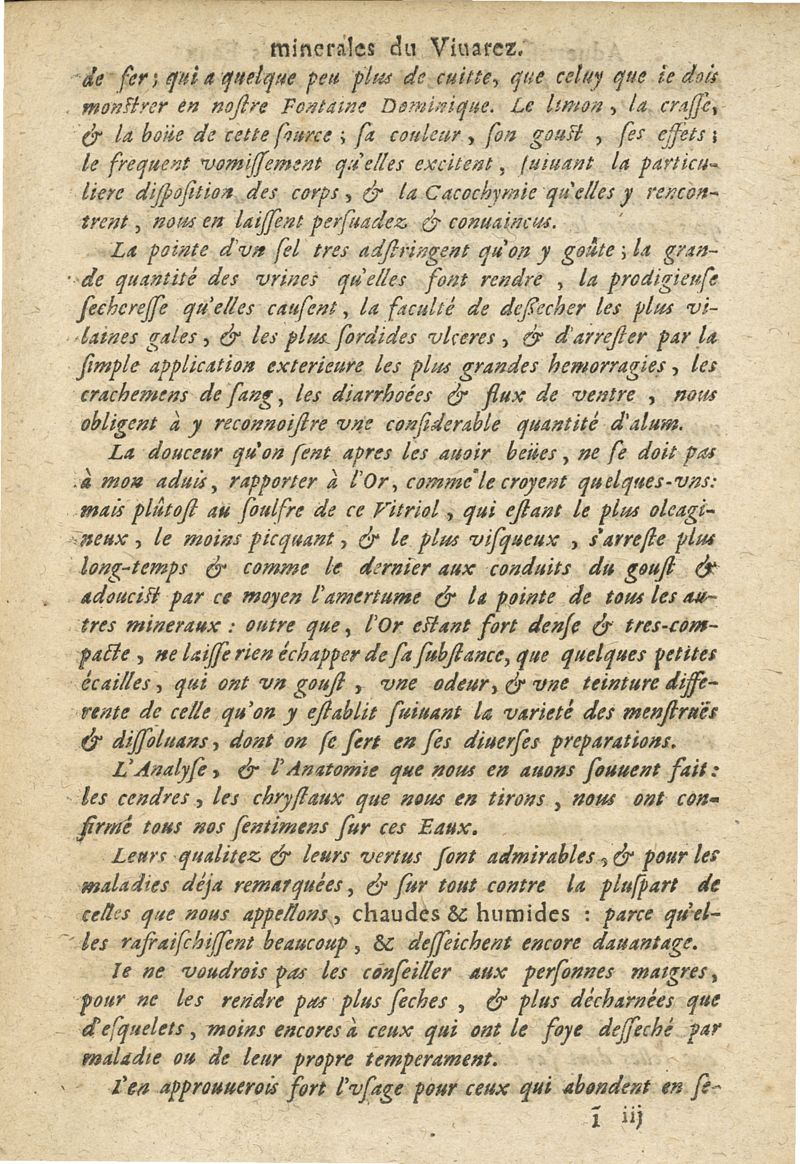 minerales du Viuarez.
de fer; qui a quelque peu plus de cuitte, que celuy que ie dois
monſtrer en noſtre Fontaine Dominique. Le limon, la craſſe,
& la boüe de cette ſource; ſa couleur, ſon gouſt, ſes effets;
le frequent vomiſſement qu'elles excitent, ſuiuant la particu-
liere diſpoſition des corps, & la Cacochymie qu'elles y rencon-
trent, nous en laiſſent perſuadez & conuaincus.
La pointe d'vn ſel tres adſtringent qu'on y goûte; la gran-
de quantité des vrines qu'elles font rendre, la prodigieuſe
ſechereſſe qu'elles cauſent, la faculté de deßecher les plus vi-
laines gales, & les plus ſordides vlceres, & d'arreſter par la
ſimple application exterieure les plus grandes hemorragies, les
crachemens de ſang, les diarrhoées & flux de ventre, nous
obligent à y reconnoiſtre vne conſiderable quantité d'alum.
La douceur qu'on ſent apres les auoir beües, ne ſe doit pas
à mon aduis, rapporter à l'Or, comme le croyent quelques-vns:
mais plûtoſt au ſoulfre de ce Vitriol, qui eſtant le plus oleagi-
neux, le moins picquant, & le plus viſqueux, s'arreſte plus
long-temps & comme le dernier aux conduits du gouſt &
adouciſt par ce moyen l'amertume & la pointe de tous les au-
tres mineraux: outre que, l'Or eſtant fort denſe & tres-com-
pacte, ne laiſſe rien échapper de ſa ſubſtance, que quelques petites
écailles, qui ont vn gouſt, vne odeur, & vne teinture diffe-
rente de celle qu'on y eſtablit ſuiuant la varieté des menſtruës
& diſſoluans, dont on ſe ſert en ſes diuerſes preparations.
L'Analyſe, & l'Anatomie que nous en auons ſouuent fait:
les cendres, les chryſtaux que nous en tirons, nous ont con-
firmé tous nos ſentimens ſur ces Eaux.
Leurs qualitez & leurs vertus ſont admirables, & pour les
maladies déja remarquées, & ſur tout contre la pluſpart de
celles que nous appellons, chaudes & humides: parce qu'el-
les rafraiſchiſſent beaucoup, & deſſeichent encore dauantage.
Ie ne voudrois pas les conſeiller aux perſonnes maigres,
pour ne les rendre pas plus ſeches, & plus décharnées que
d'eſquelets, moins encores à ceux qui ont le foye deſſeché par
maladie ou de leur propre temperament.
I'en approuuerois fort l'vſage pour ceux qui abondent en ſe-
ī iij